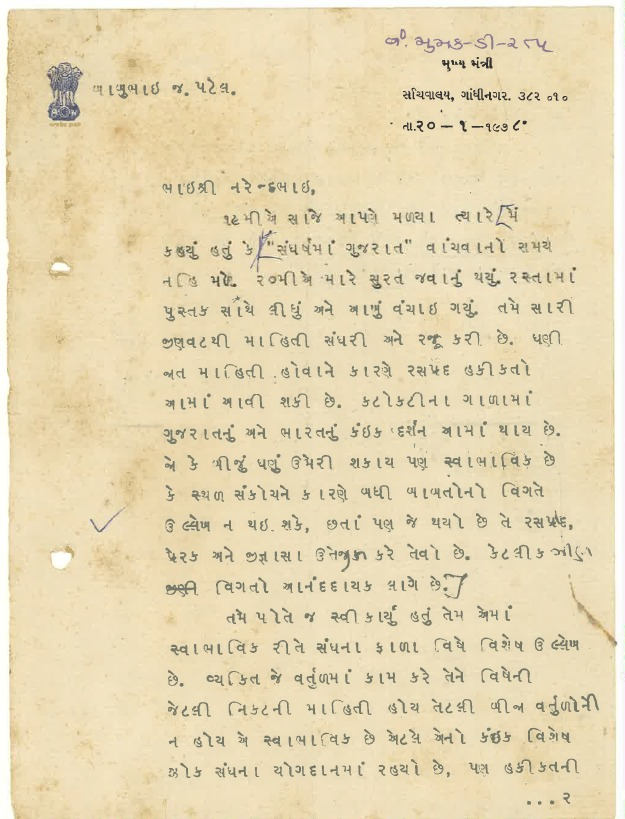 નં. મુમક-ડી-૨૮૫
મુખ્ય મંત્રી
બાબુભાઇ જ. પટેલ.
સચિવાલય, ગાંધીનગર. ૩૮૨ ૦૧૦
તા.૨૦ – ૧ –૧૯૭૮
ભાઇશ્રી નરેન્દ્રભાઇ,
૧૯મીએ સાંજે આપણે મળ્યા ત્યારે [મેં
કહ્યું હતું કે "સંઘર્ષમાં ગુજરાત" વાંચવાનો સમય
નહિ મળે. ૨૦મીએ મારે સુરત જવાનું થયું. રસ્તામાં
પુસ્તક સાથે લીધું અને આખું વંચાઇ ગયું. તમે સારી
જીણવટથી માહિતી સંઘરી અને રજૂ કરી છે. ઘણી
જાત માહિતી હોવાને કારણે રસપ્રદ હકીકતો
આમાં આવી શકી છે. કટોકટીના ગાળામાં
ગુજરાતનું અને ભારતનું કંઇક દર્શન આમાં થાય છે.
જો કે બીજું ઘણું ઉમેરી શકાય પણ સ્વાભાવિક છે
કે સ્થળ સંકોચને કારણે બધી બાબતોનો વિગતે
ઉલ્લેખ ન થઇ શકે, છતાં પણ જે થયો છે તે રસપ્રદ,
પ્રેરક અને જીજ્ઞાસા ઉત્તેજીત કરે તેવો છે. કેટલીક ઝીણી
વિગતો આનંદદાયક લાગે છે.]
તમે પોતે જ સ્વીકાર્યું હતું તેમ એમાં
સ્વાભાવિક રીતે સંઘના ફાળા વિષે વિશેષ ઉલ્લેખ
છે. વ્યકિત જે વર્તુળમાં કામ કરે તેને વિષેની
જેટલી નિકટની માહિતી હોય તેટલી બીજા વર્તુળોની
ન હોય એ સ્વાભાવિક છે એટલે એનો કંઇક વિશેષ
ઝોક સંઘના યોગદાનમાં રહયો છે, પણ હકીકતની
... ૨